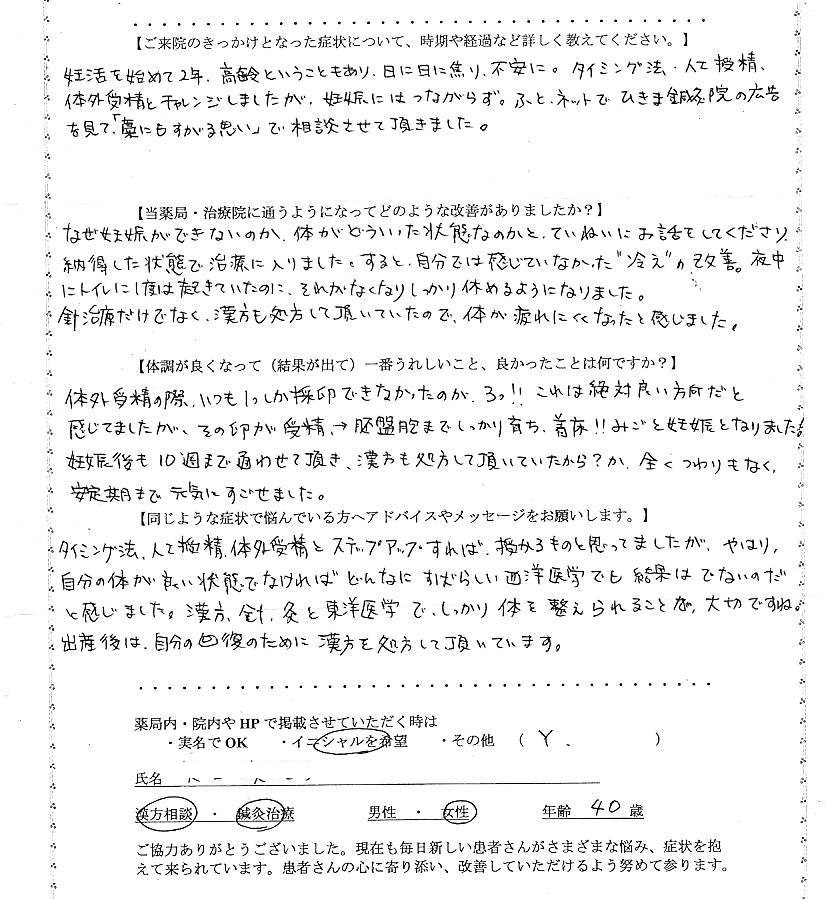 【ご来院のきっかけとなった症状について、時期や経過など詳しく教えてください。】
妊活を始めて2年、高齢ということもあり、日に日に焦り、不安に。タイミング法・人工授精、
体外受精とチャレンジしましたが、妊娠にはつながらず。ふと、ネットでひきま鍼灸院の広告
を見て、「藁にもすがる思い」で相談させて頂きました。
【当薬局・治療院に通うようになってどのような改善がありましたか？】
なぜ妊娠ができないのか、体がどういった状態なのかと、ていねいにお話をしてくださり、
納得した状態で治療に入りました。すると、自分では感じていなかった"冷え"が改善。夜中
にトイレに1度は起きていたのに、それがなくなりしっかり休めるようになりました。
針治療だけでなく、漢方も処方して頂いていたので、体が疲れにくくなったと感じました。
【体調が良くなって（結果が出て）一番うれしいこと、良かったことは何ですか？】
体外受精の際、いつも1っしか採卵できなかったのが、3っ!! これは絶対良い方向だと
感じてましたが、その卵が受精、→胚盤胞までしっかり育ち、着床!!みごと妊娠となりました。
妊娠後も10週まで通わせて頂き、漢方も処方して頂いていたから？か、全くつわりもなく、
安定期まで元気にすごせました。
【同じような症状で悩んでいる方へアドバイスやメッセージをお願いします。】
タイミング法、人工授精、体外受精とステップアップすれば、授かるものと思ってましたが、やはり、
自分の体が良い状態でなければどんなにすばらしい西洋医学でも結果はでないのだ
と感じました。漢方、針、灸と東洋医学で、しっかり体を整えられることが、大切ですね。
出産後は、自分の回復のために漢方を処方して頂いています。
薬局内・院内やHPで掲載させていただく時は
・実名でOK ・イニシャルを希望 ・その他 （ Y. ）
氏名
漢方相談 ・ 鍼灸治療 男性 ・ 女性 年齢 40 歳
ご協力ありがとうございました。現在も毎日新しい患者さんがさまざまな悩み、症状を抱
えて来られています。患者さんの心に寄り添い、改善していただけるよう努めて参ります。